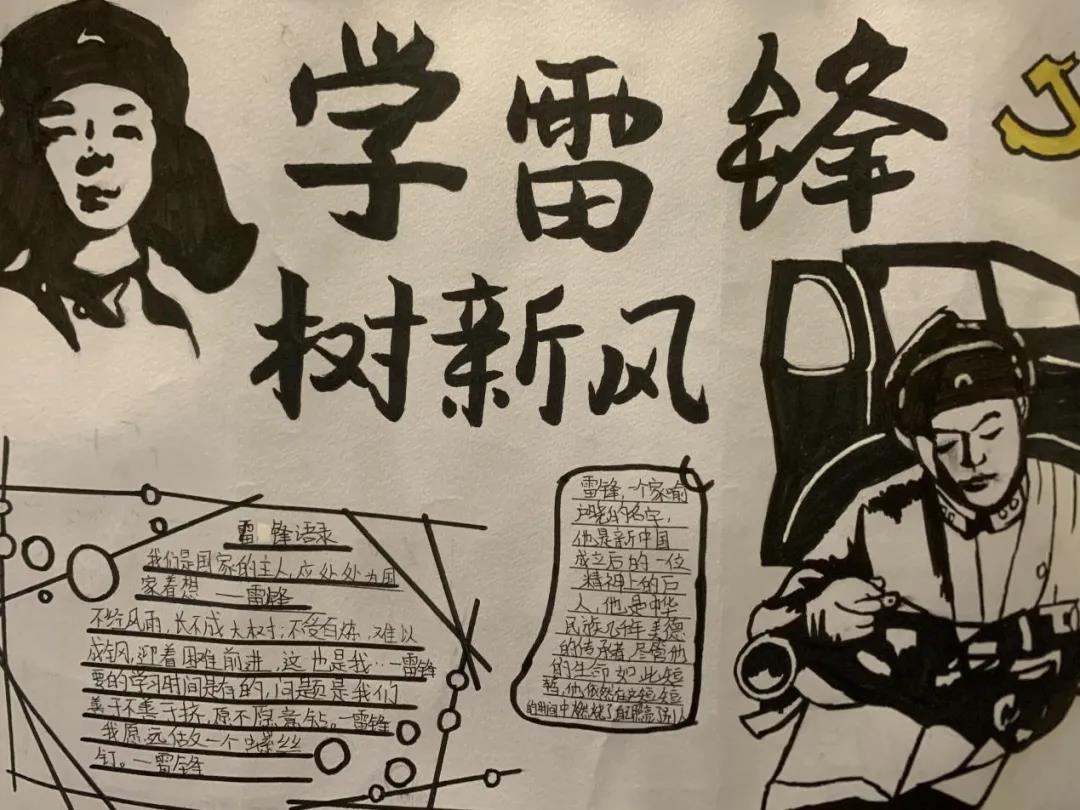 学雷锋
树新风
雷锋语录
我们是国家的主人,应处处为国
家着想 —雷锋
不经风雨,长不成大树;不受百炼,难以
成钢,迎着困难前进,这也是我…—雷锋
要的学习时间是有的,问题是我们
善于不善于挤,愿不愿意钻。—雷锋
我愿远做一个螺丝
钉。—雷锋
雷锋,一个家喻
户晓的名字,
他是新中国
成立后的一位
精神上的巨
人,他是中华
民族几千年美德
的传承者,尽管他
的生命如此短
暂,他依然在这短短
的时间中燃烧了